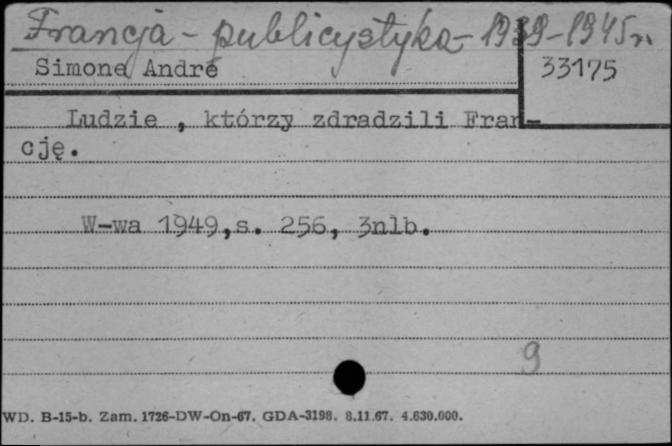 Francja - publicystyka - 1939-1945 r.
Simone André
33175
Ludzie , którzy zdradzili Fran-
cję.
W-wa 1949,s. 256, 3nlb.
9
WD. B-15-b. Zam. 1726-DW-On-67. GDA-3198. 8.11.67. 4.630.000.